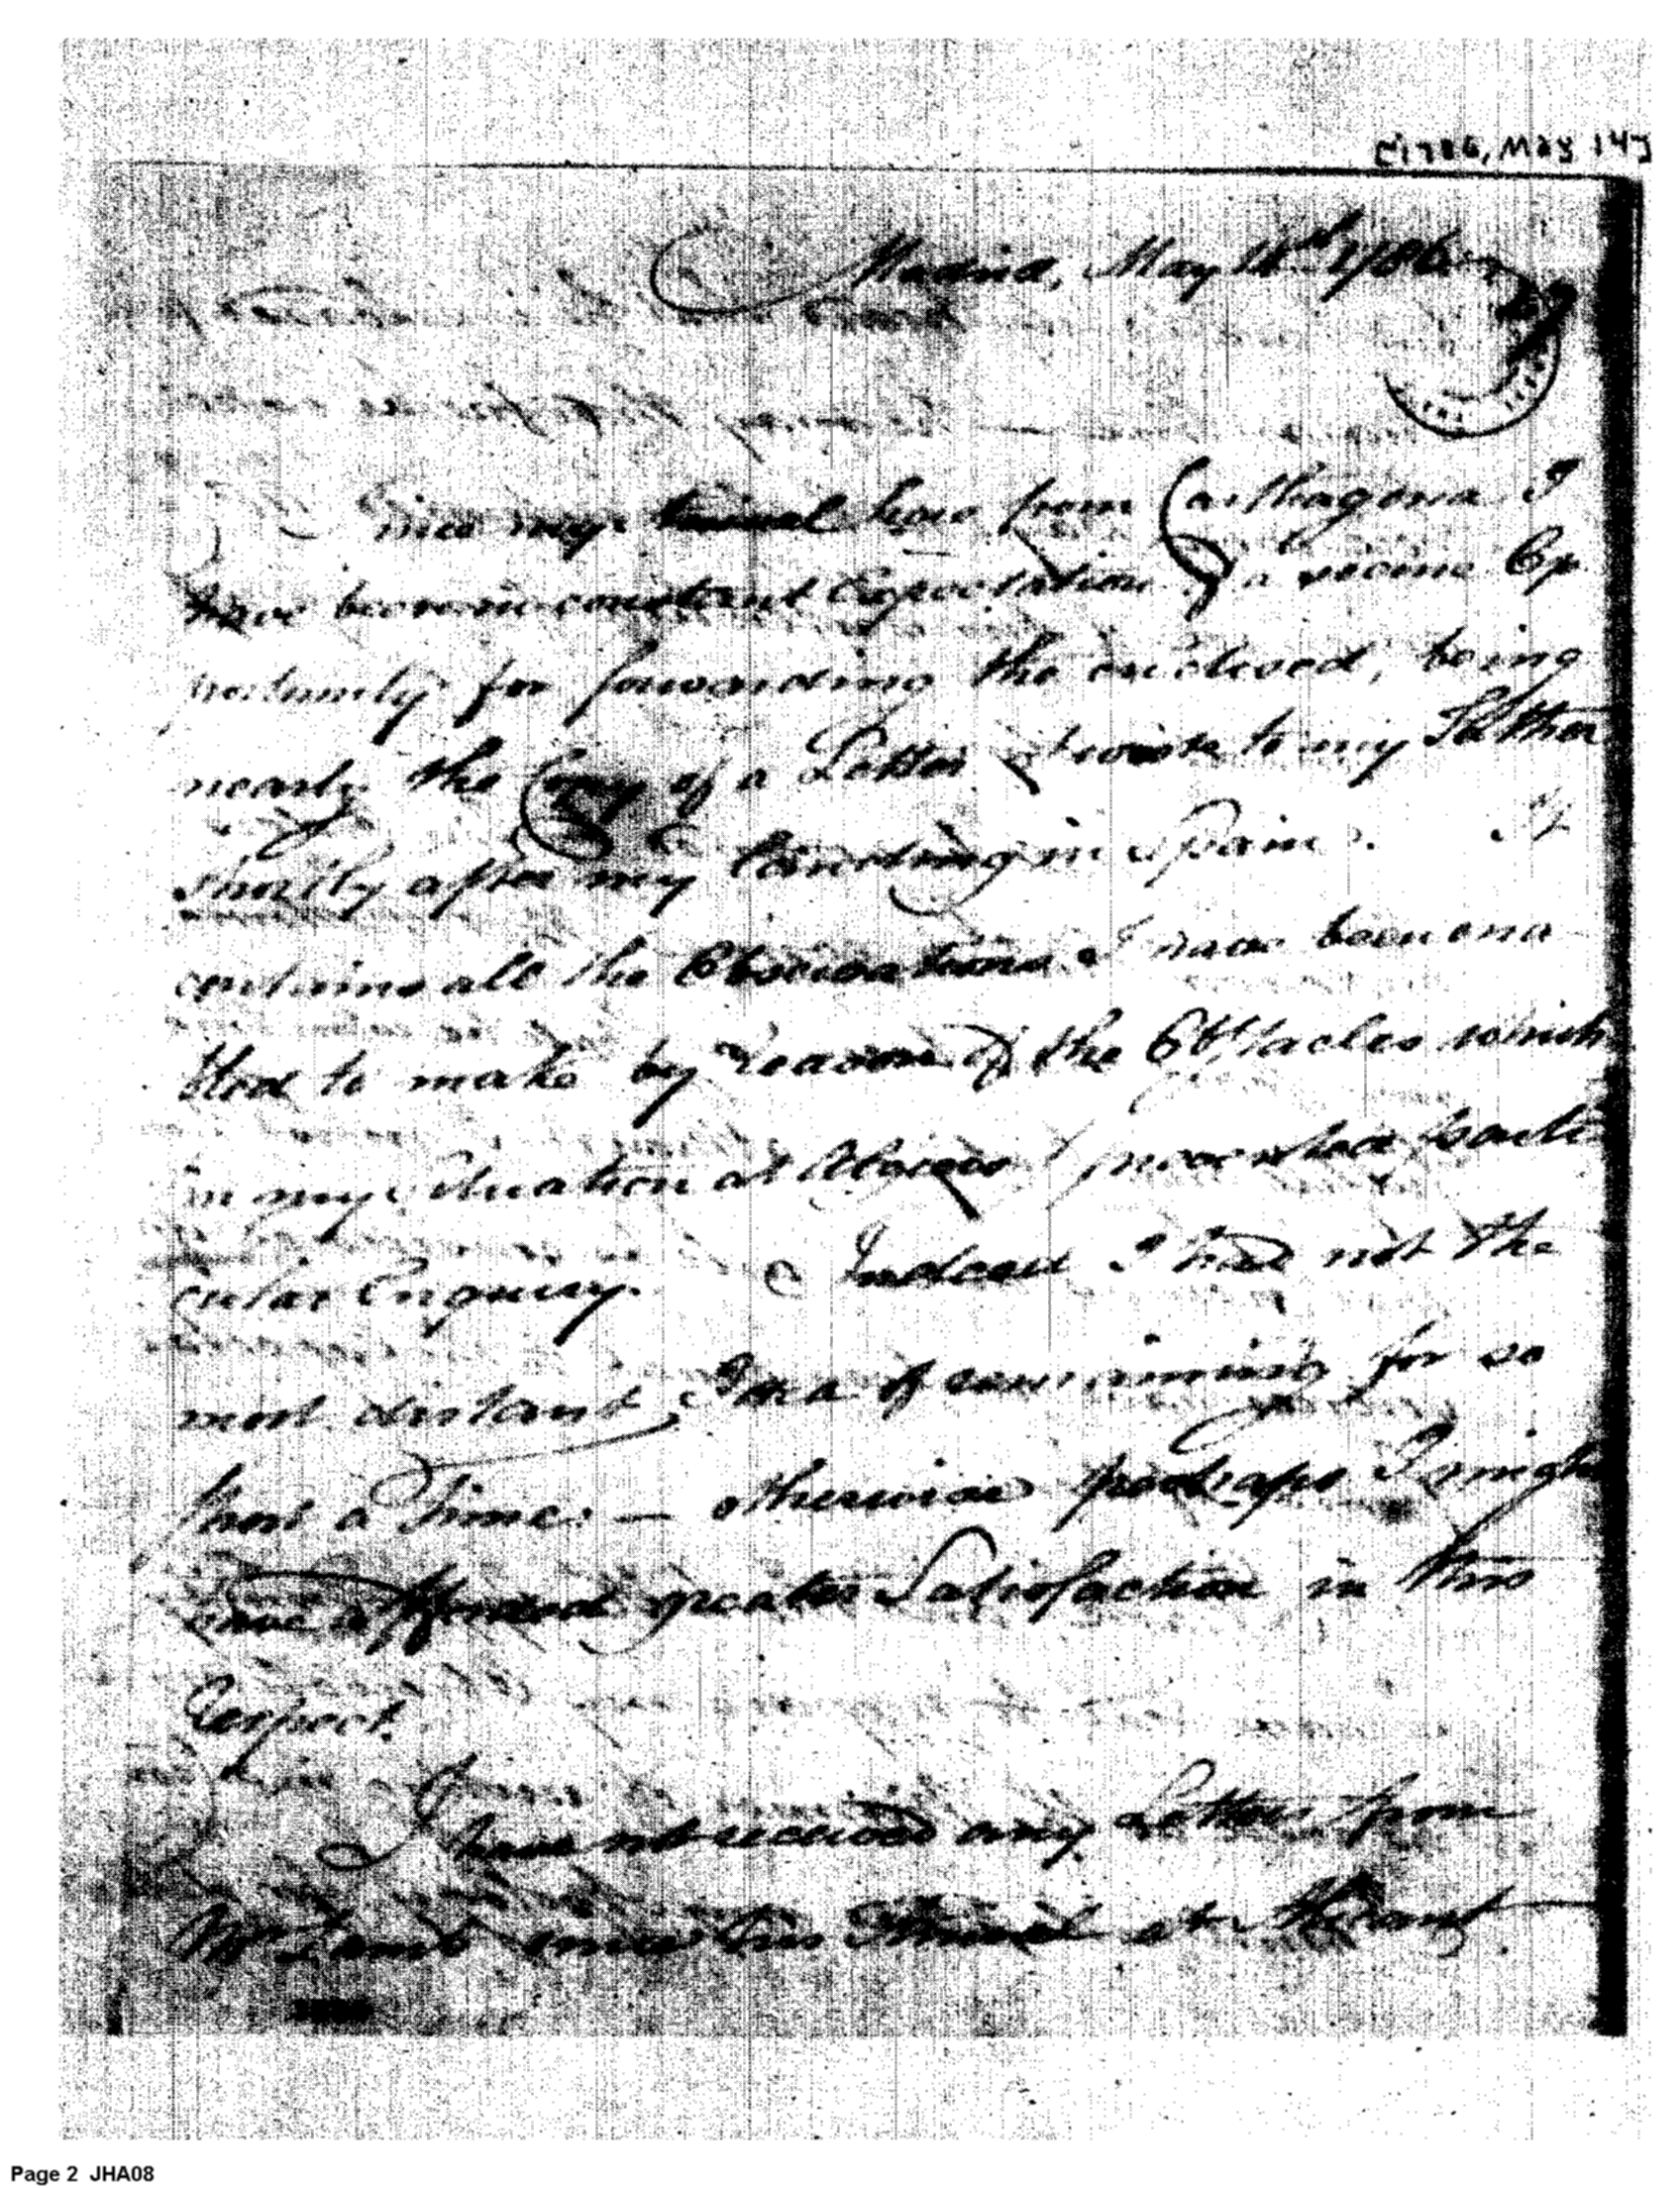 [1786, May 14]
Madrid, May 14th 1786
Since my arrival here from Carthagena I
have been in constant Expectation of a secure Op
portunity for forwarding the enclosed, being
nearly the Copy of a Letter I wrote to my Father
shortly after my Landing in Spain. It
contains all the Observations I have been ena
bled to make by reason of the Obstacles which
in my situation at Algiers prevented parti
cular Enquiry. Indeed I had not the
most distant Idea of remaining for so
short a Time: — otherwise perhaps I might
have afforded greater Satisfaction in this
Respect.
I have not received any Letters from
Mr Lamb since his Arrival at Alicant
Page 2 JHA08